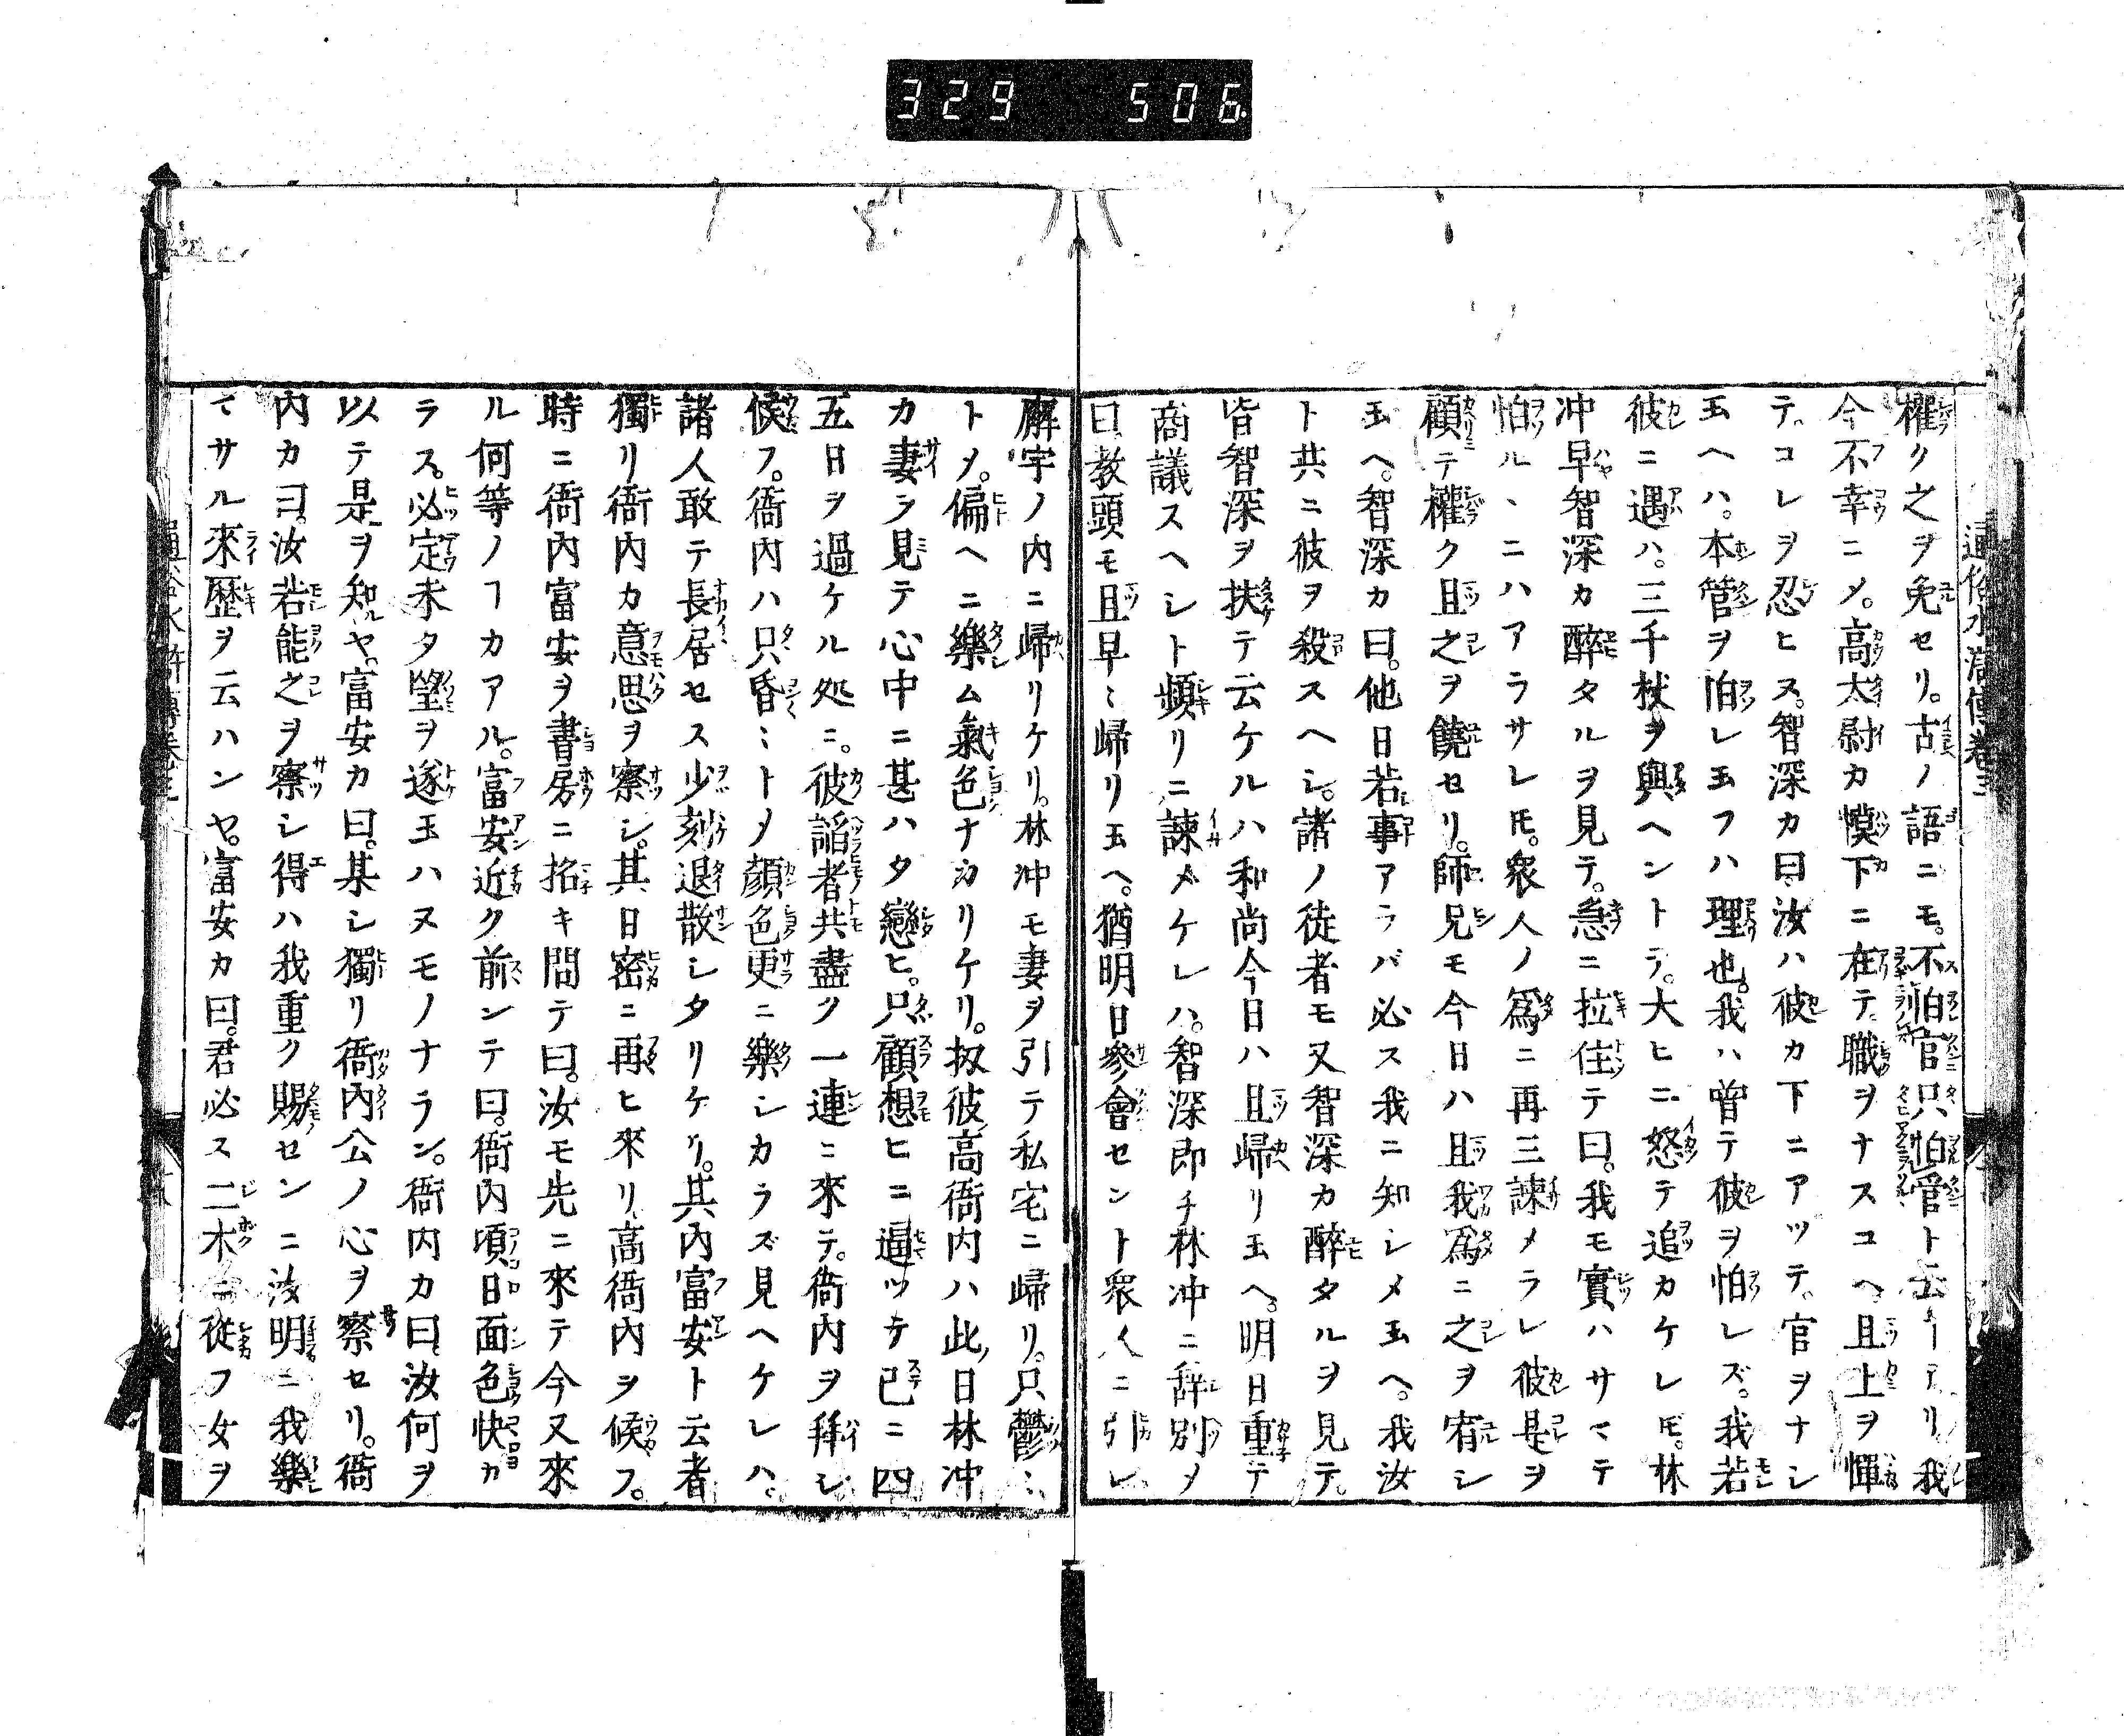 329 506
通俗水滸傳卷三
權ク之ヲ免セリ。古ノ語ニモ。不怕官只怕管ト云ーアリ。我
今不幸ニメ。高太尉カ幕下ニ在テ。職ヲナスコヘ。且上ヲ憚
テ。コレヲ忍ヒヌ。智深カ曰。汝ハ彼カ下ニアツテ。官ヲナシ
玉ヘハ。本管ヲ怕レ玉フハ理也。我ハ曽テ彼ヲ怕レズ。我若
彼ニ遇ハ。三千杖ヲ與ヘントテ。大ヒニ怒テ追カケレ𪜈。林
冲早智深カ醉タルヲ見テ。急ニ拉住テ曰。我モ實ハサマテ
怕ル丶ニハアラサレ𪜈。衆人ノ為ニ再三諌メラレ彼是ヲ
顧テ權ク且之ヲ饒セリ。師兄モ今日ハ且我為ニ之ヲ宥シ
玉ヘ。智深カ曰。他日若事アラバ必ス我ニ知シメ玉ヘ。我汝
ト共ニ彼ヲ殺スヘシ。諸ノ徒者モ又智深カ醉タルヲ見テ。
皆智深ヲ扶テ云ケルハ和尚今日ハ且歸リ玉ヘ。明日重テ
商議スヘシト頻リニ諌メケレハ。智深即チ林冲ニ辞別メ
曰。教頭モ且早ミ歸リ玉ヘ。猶明日參會セント衆人ニ引レ
廨宇ノ内ニ歸リケリ。林冲モ妻ヲ引テ私宅ニ歸リ。只鬱ミ
トメ。偏ヘニ樂ム氣色ナカリケリ。扨彼高衙内ハ此日林冲
カ妻ヲ見テ心中ニ甚ハタ戀ヒ。只顧想ヒニ逼ツテ已ニ四
五日ヲ過ケル処ニ。彼謟者共盡ク一連ニ來テ。衙内ヲ拜シ
候フ。衙内ハ只昏ミトメ顔色更ニ樂シカラズ見ヘケレハ。
諸人敢テ長居セス少刻退散シタリケリ。其内富安ト云者
獨リ衙内カ意思ヲ察シ。其日密ニ再ヒ來リ高衙内ヲ候フ。
時ニ衙内富安ヲ書房ニ招キ問テ曰。汝モ先ニ來テ今又來
ル何等ノヿカアル。富安近ク前ンテ曰。衙内頃日面色快カ
ラス。必定未タ望ヲ遂玉ハヌモノナラン。衙内カ曰。汝何ヲ
以テ是ヲ知ヤ。富安カ曰。某シ獨リ衙内公ノ心ヲ察セリ。衙
内カ曰。汝若能之ヲ察シ得ハ我重ク賜センニ汝明ニ我樂
マサル來歷ヲ云ハンヤ。富安カ曰。君必ス二木ニ從フ女ヲ
通俗水滸傳卷三